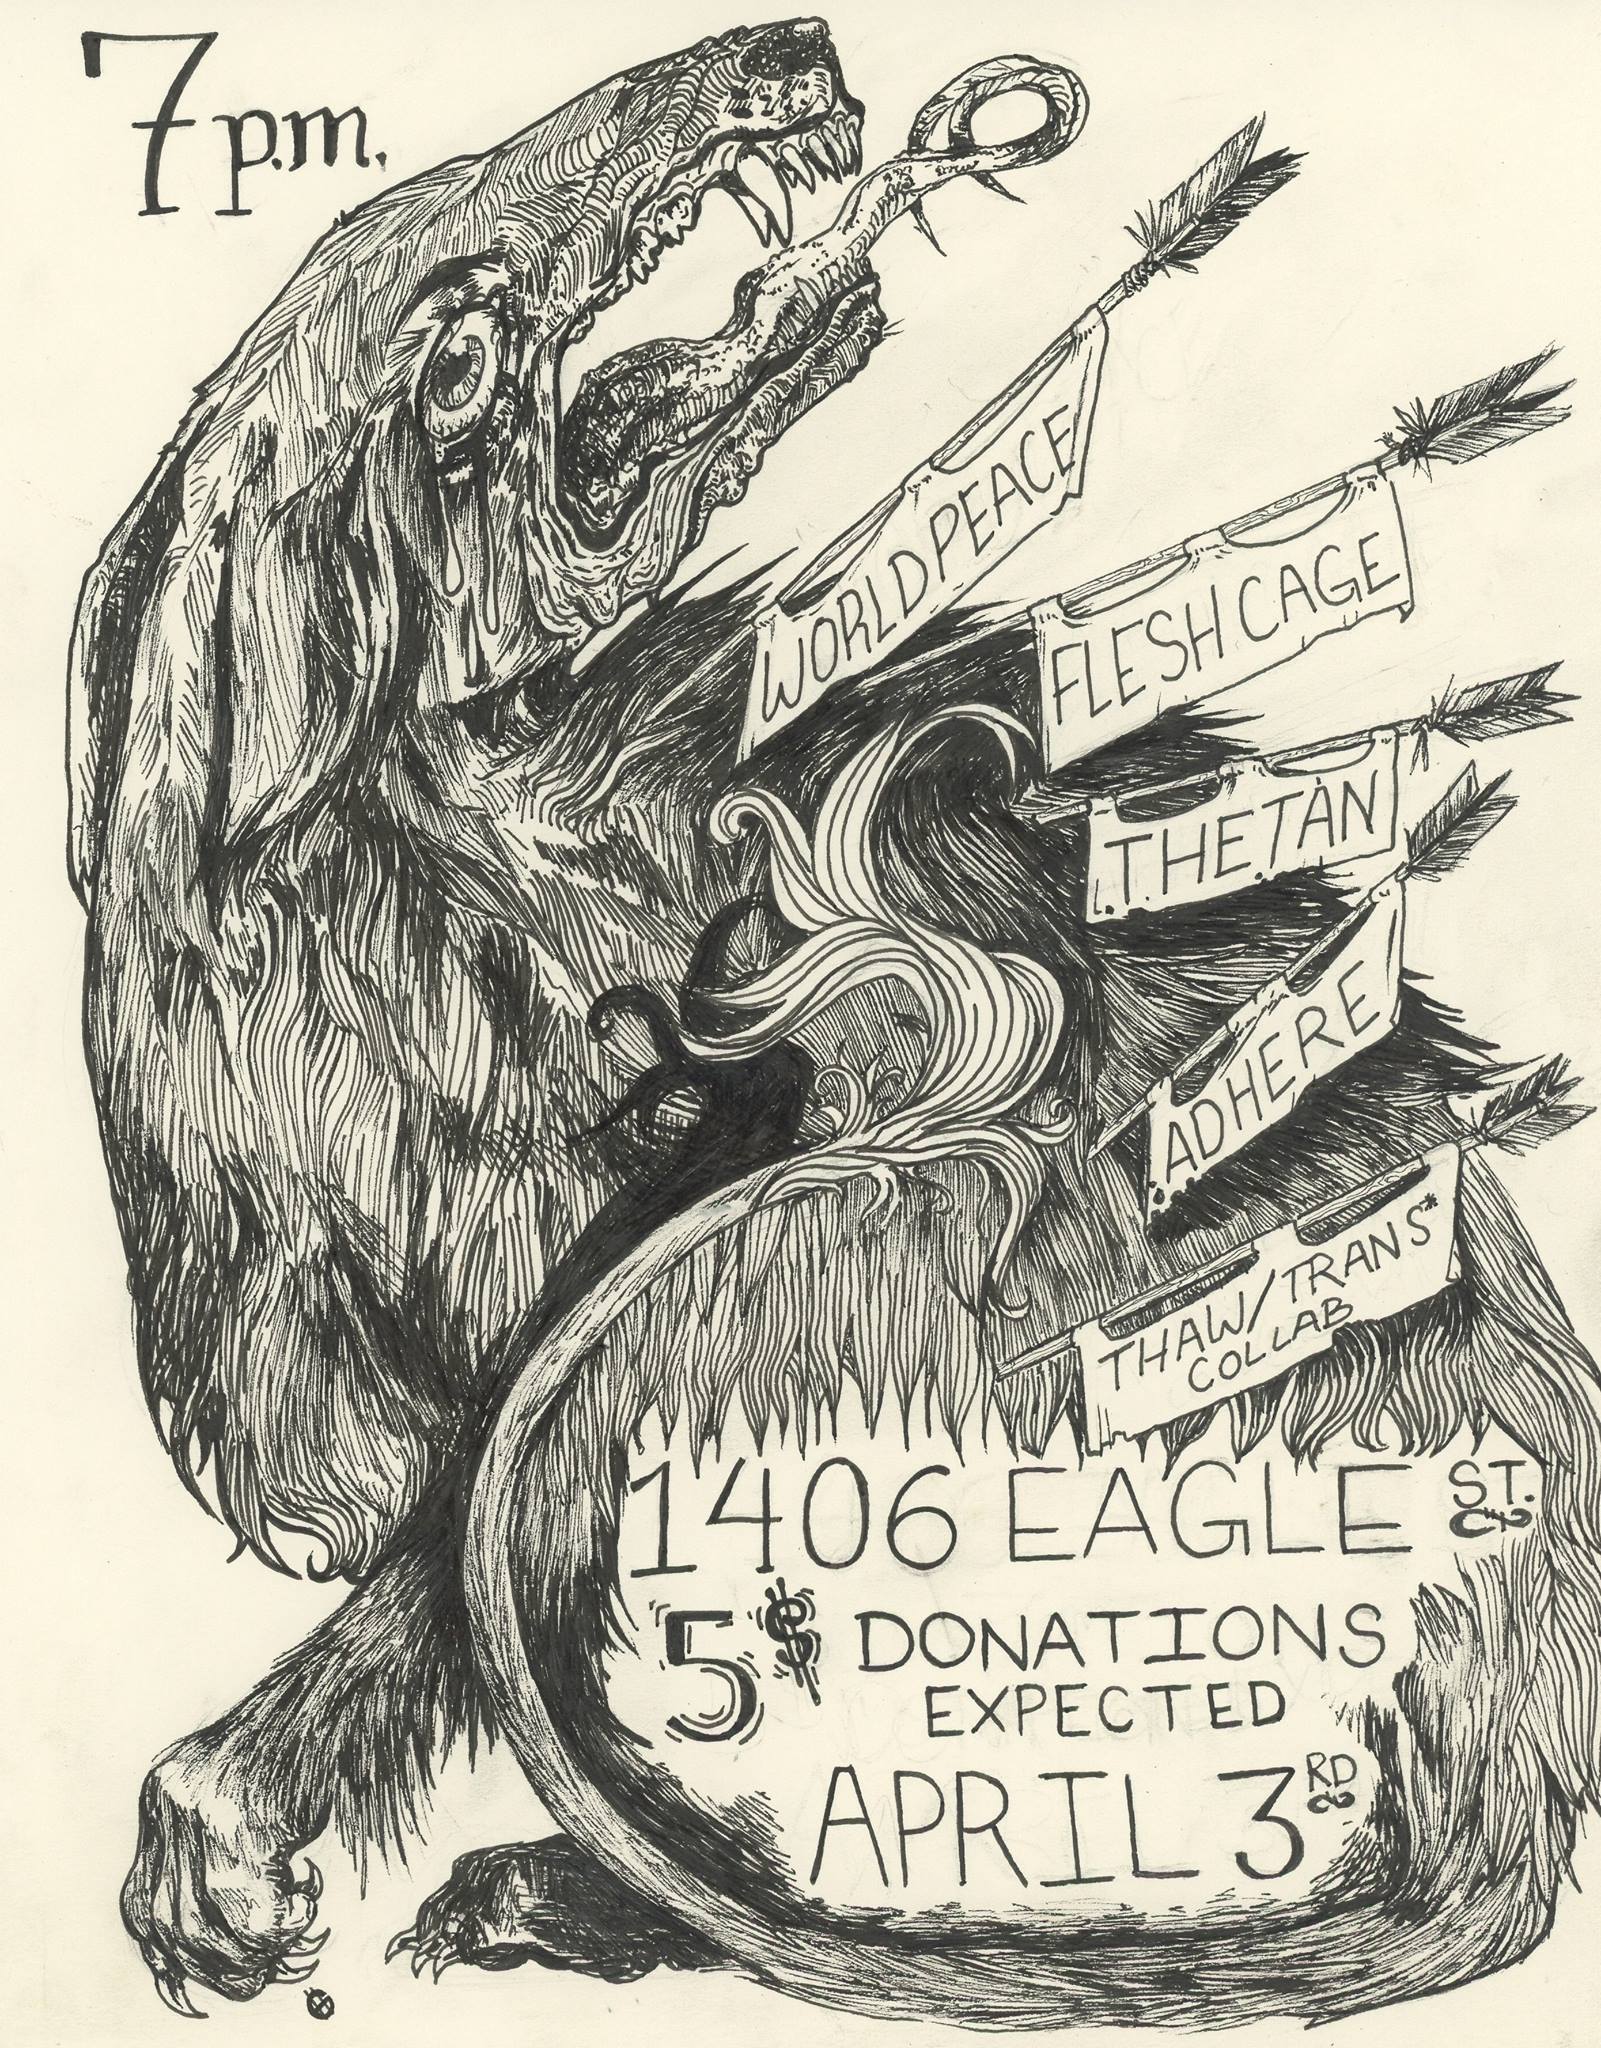 7 p.m.
WORLD PEACE
FLESH CAGE
THETAN
ADHERE
THAW/TRANS*
COLLAB
1406 EAGLE ST.
5$ DONATIONS
EXPECTED
APRIL 3RD